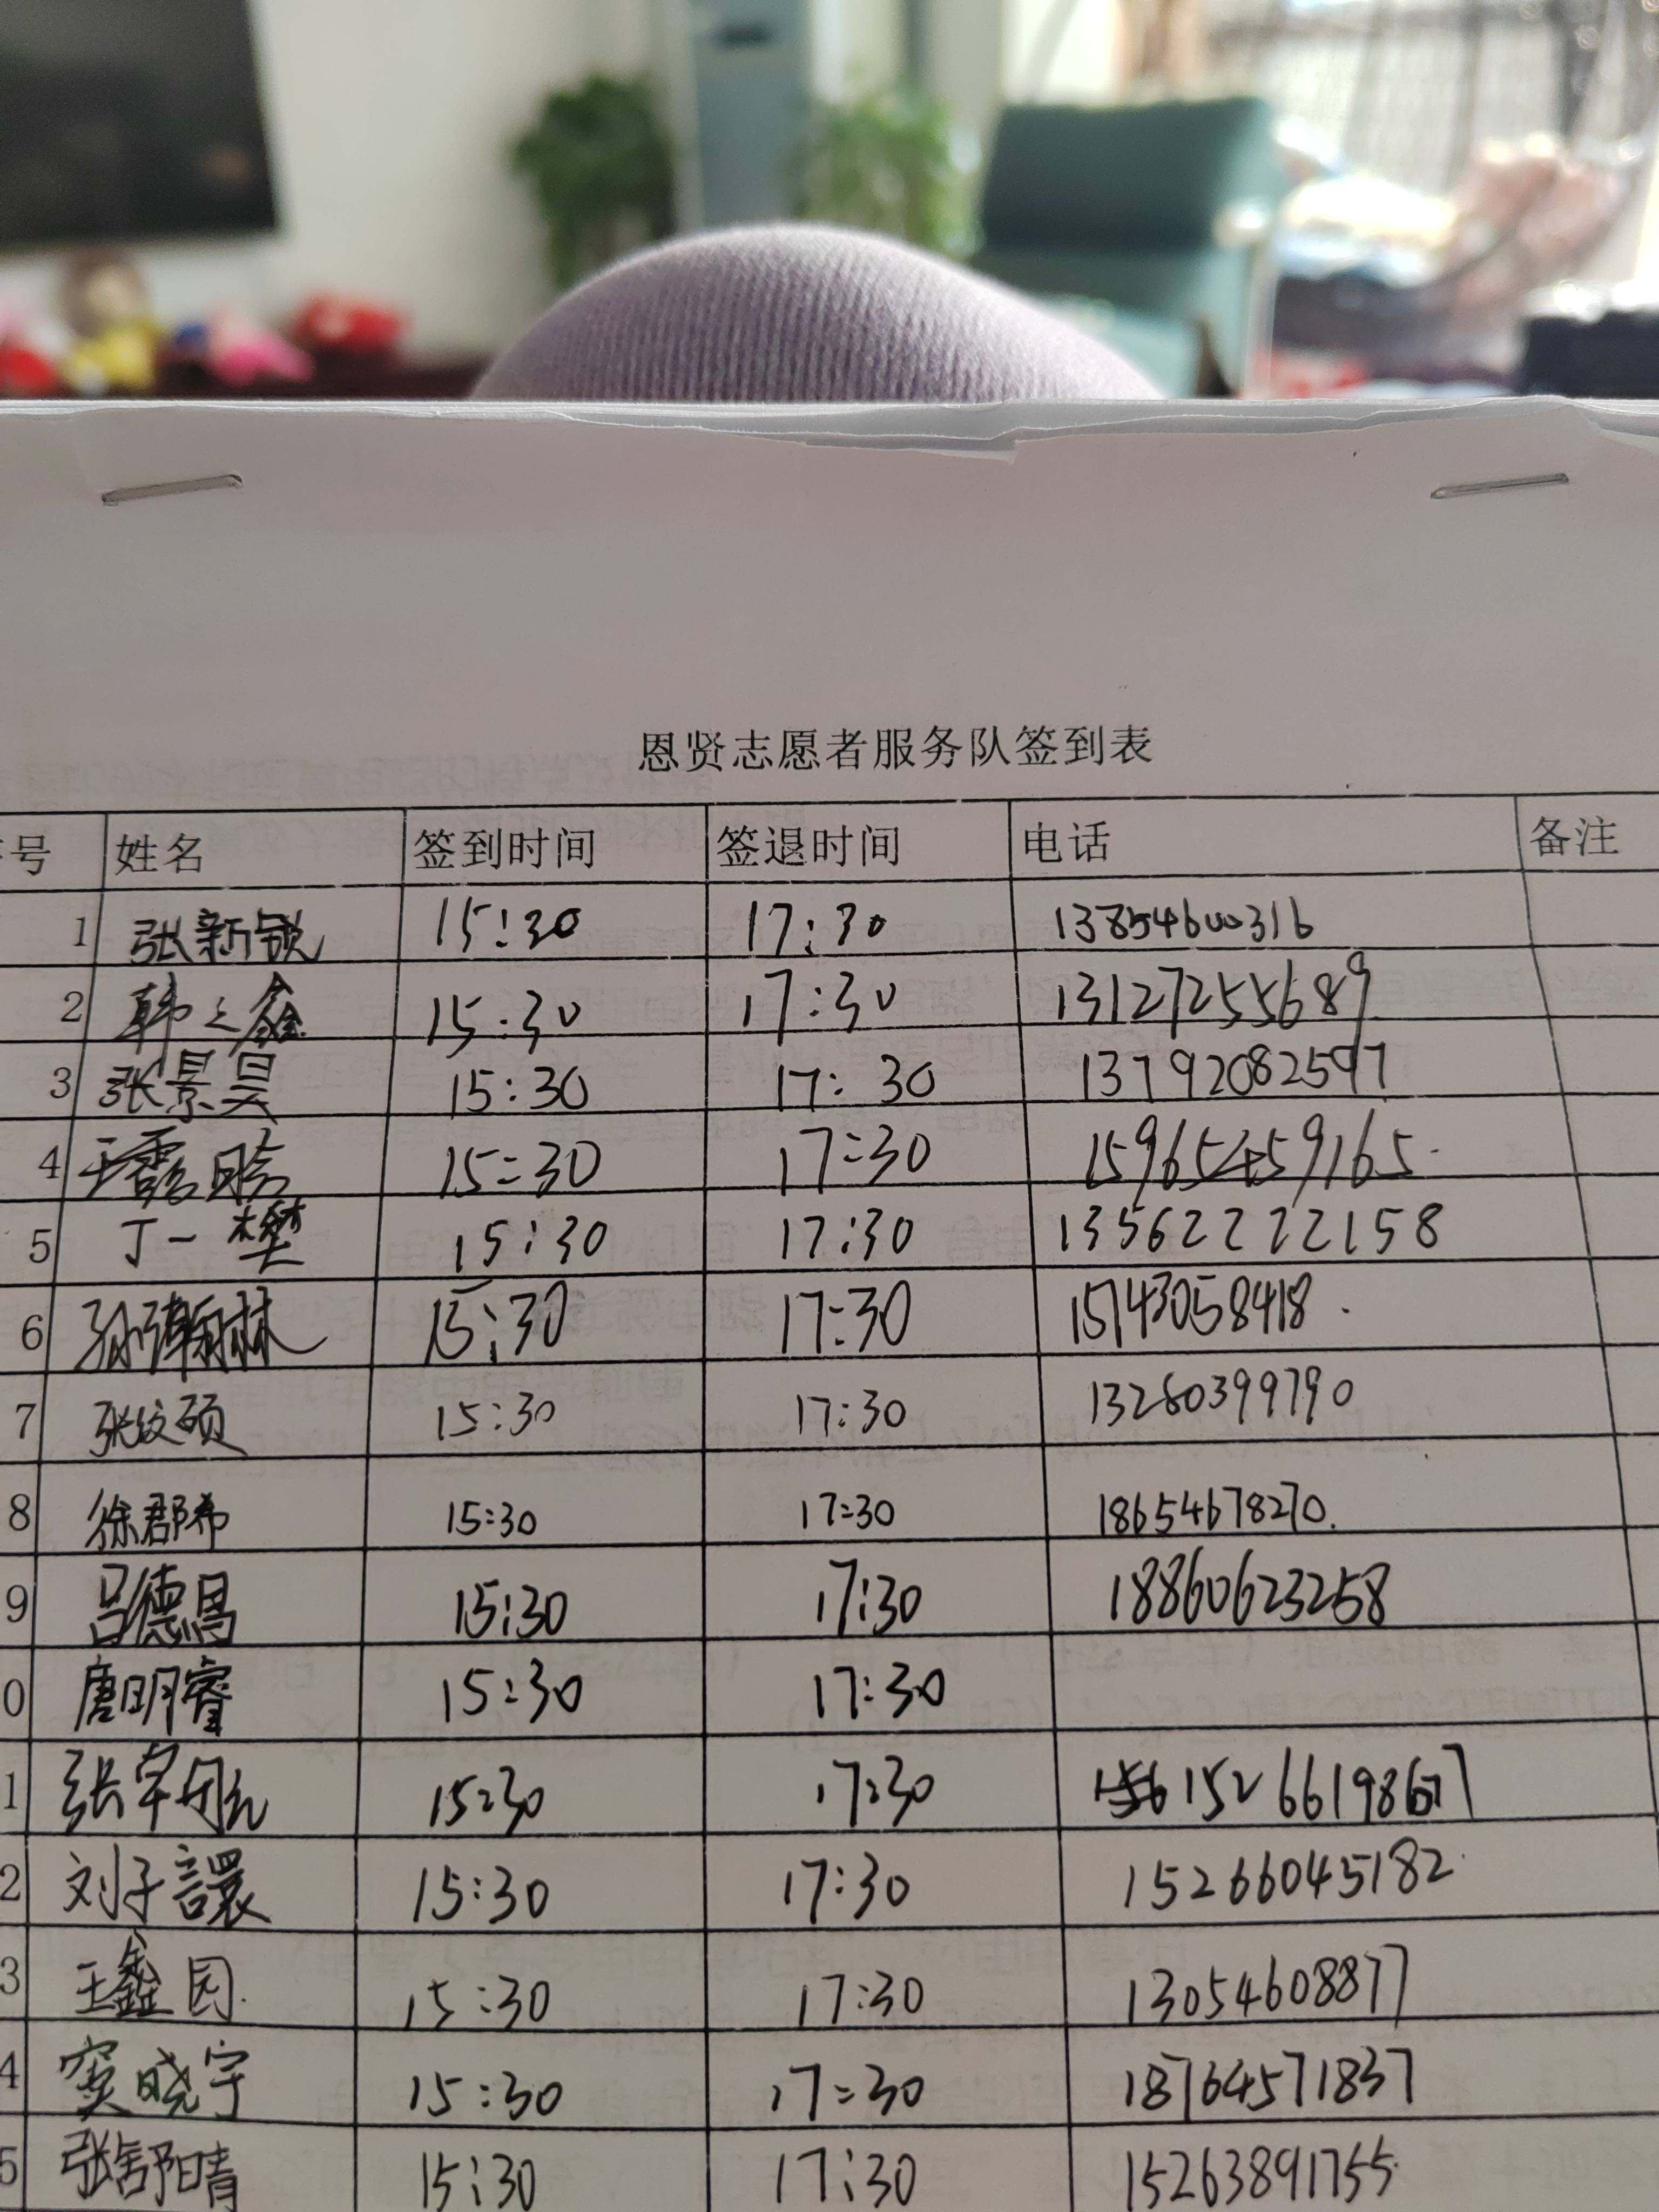 恩贤志愿者服务队签到表
号 姓名 签到时间 签退时间 电话 备注
1 张新锐 15:30 17:30 13854600316
2 韩之鑫 15:30 17:30 13127255689
3 张景昊 15:30 17:30 13792082597
4 王露晗 15:30 17:30 15965459165
5 丁一 15:30 17:30 13562222158
6 孙瀚林 15:30 17:30 15743058418
7 张纹硕 15:30 17:30 13280399790
8 徐郡希 15:30 17:30 18654678270
9 吕德昌 15:30 17:30 18860623258
0 唐明睿 15:30 17:30
1 张 15:30 17:30 15266198677
2 刘子譞 15:30 17:30 15266045182
3 王鑫园 15:30 17:30 13054608877
4 窦晓宇 15:30 17:30 18764571837
5 张舒晴 15:30 17:30 15263891755